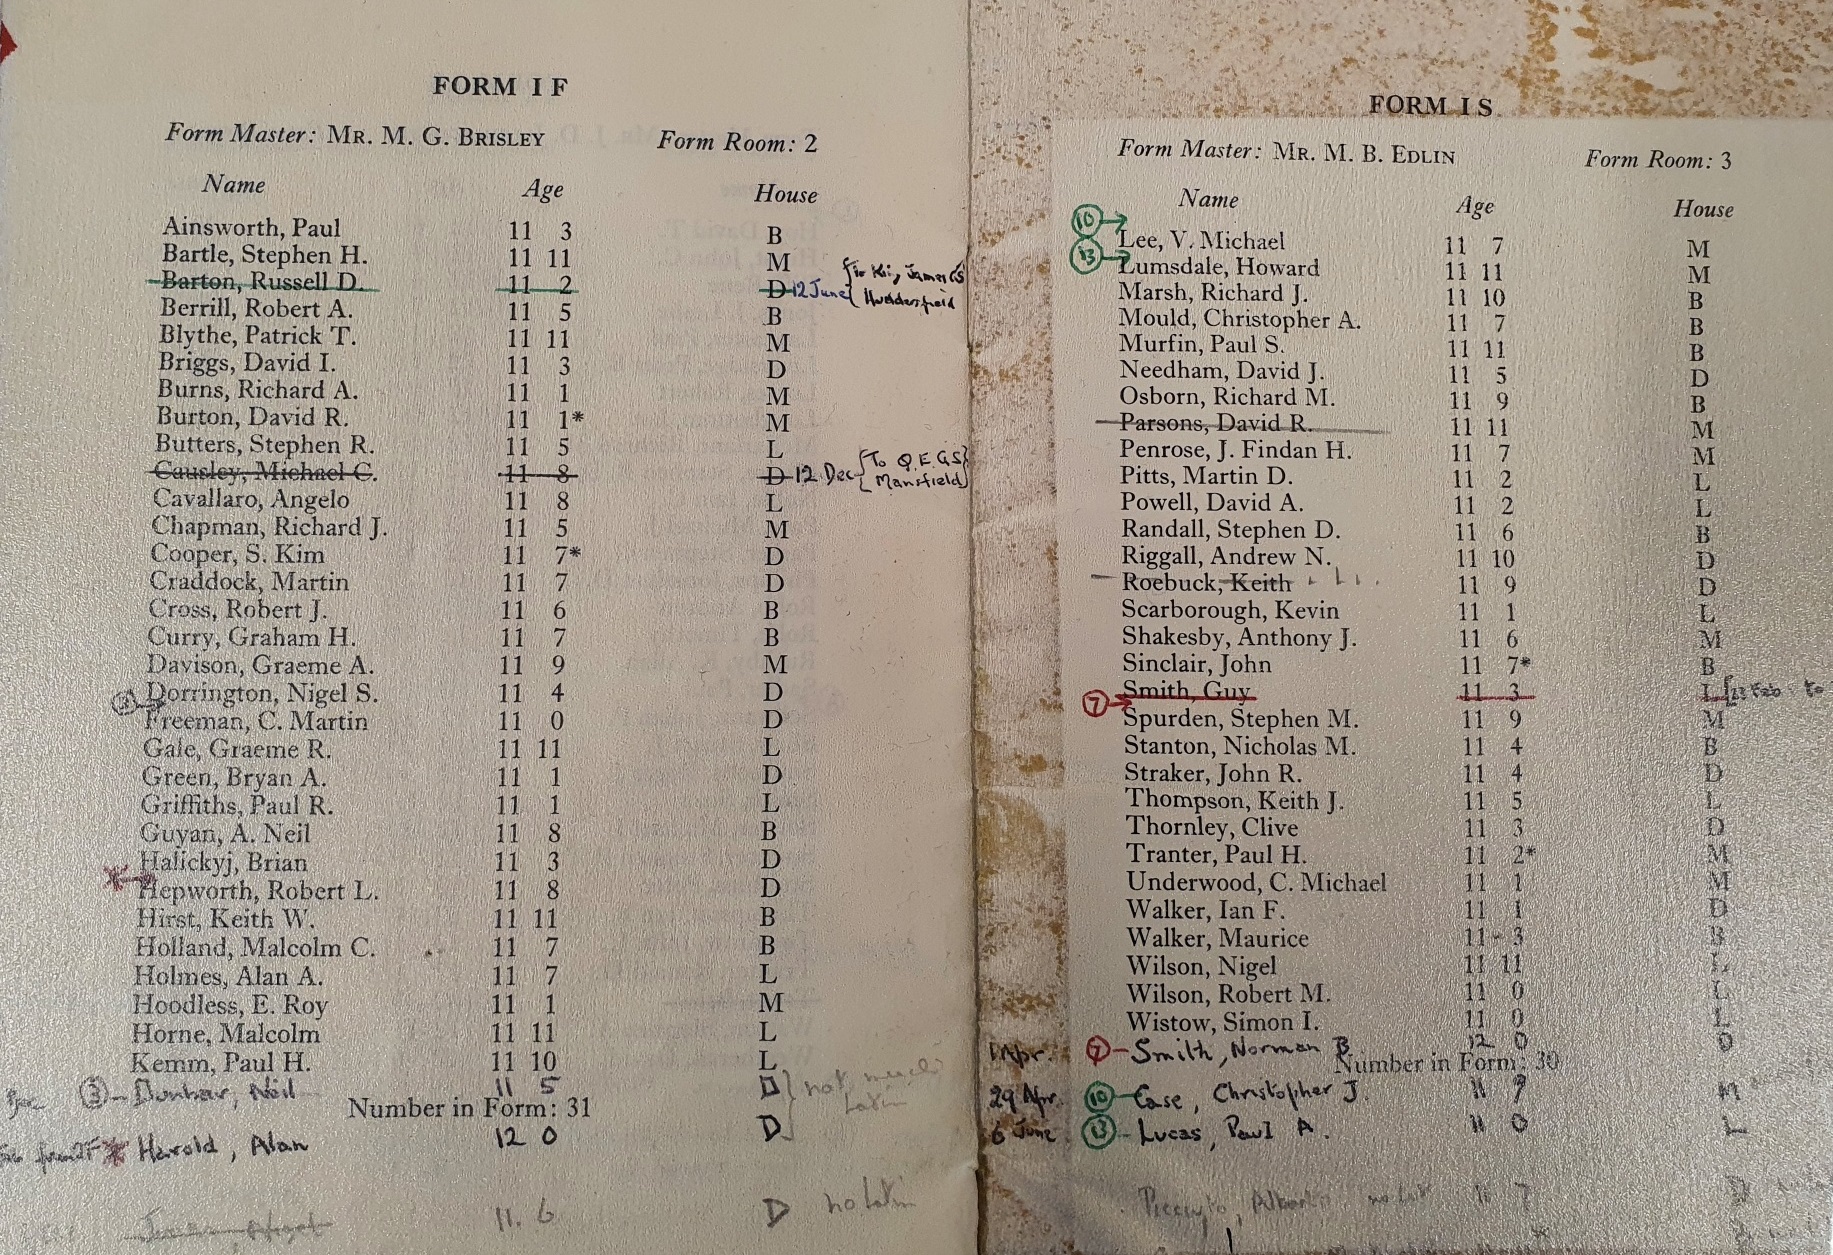 FORM I F
Form Master: MR. M. G. BRISLEY Form Room: 2
Name Age House
Ainsworth, Paul 11 3 B
Bartle, Stephen H. 11 11 M
Barton, Russell D. 11 2 D 12 June { to King James GS Huddersfield
Berrill, Robert A. 11 5 B
Blythe, Patrick T. 11 11 M
Briggs, David I. 11 3 D
Burns, Richard A. 11 1 M
Burton, David R. 11 1* M
Butters, Stephen R. 11 5 L
Causley, Michael C. 11 8 D 12 Dec { To Q.E.G.S } Mansfield
Cavallaro, Angelo 11 8 L
Chapman, Richard J. 11 5 M
Cooper, S. Kim 11 7* D
Craddock, Martin 11 7 D
Cross, Robert J. 11 6 B
Curry, Graham H. 11 7 B
Davison, Graeme A. 11 9 M
Dorrington, Nigel S. 11 4 D
Freeman, C. Martin 11 0 D
Gale, Graeme R. 11 11 L
Green, Bryan A. 11 1 D
Griffiths, Paul R. 11 1 L
Guyan, A. Neil 11 8 B
Halickyj, Brian 11 3 D
Hepworth, Robert L. 11 8 D
Hirst, Keith W. 11 11 B
Holland, Malcolm C. 11 7 B
Holmes, Alan A. 11 7 L
Hoodless, E. Roy 11 1 M
Horne, Malcolm 11 11 L
Kemm, Paul H. 11 10 L
③ Dunbar, Neil 11 5 D } not much Latin
Number in Form: 31
Harold, Alan 12 0 D
11. 6 D no Latin
FORM I S
Form Master: MR. M. B. EDLIN Form Room: 3
Name Age House
⑩→
Lee, V. Michael 11 7 M
⑬→
Lumsdale, Howard 11 11 M
Marsh, Richard J. 11 10 B
Mould, Christopher A. 11 7 B
Murfin, Paul S. 11 11 B
Needham, David J. 11 5 D
Osborn, Richard M. 11 9 B
Parsons, David R. 11 11 M
Penrose, J. Findan H. 11 7 M
Pitts, Martin D. 11 2 L
Powell, David A. 11 2 L
Randall, Stephen D. 11 6 B
Riggall, Andrew N. 11 10 D
Roebuck, Keith 11 9 D
Scarborough, Kevin 11 1 L
Shakesby, Anthony J. 11 6 M
Sinclair, John 11 7* B
Smith, Guy 11 3 L
⑦→
Spurden, Stephen M. 11 9 M
Stanton, Nicholas M. 11 4 B
Straker, John R. 11 4 D
Thompson, Keith J. 11 5 L
Thornley, Clive 11 3 D
Tranter, Paul H. 11 2* M
Underwood, C. Michael 11 1 M
Walker, Ian F. 11 1 D
Walker, Maurice 11 3 B
Wilson, Nigel 11 11 L
Wilson, Robert M. 11 0 L
Wistow, Simon I. 11 0 L
1 Apr. ⑦ Smith, Norman B 12 0 D
Number in Form: 30
29 Apr. ⑩ Case, Christopher J. 11 9 M
6 June ⑬ Lucas, Paul A. 11 0 L
11 7 D